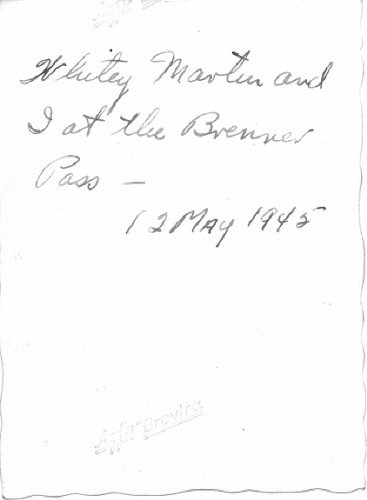 Whitey Martin and
I at the Brenner
Pass –
12 May 1945
Agfa-Brovira